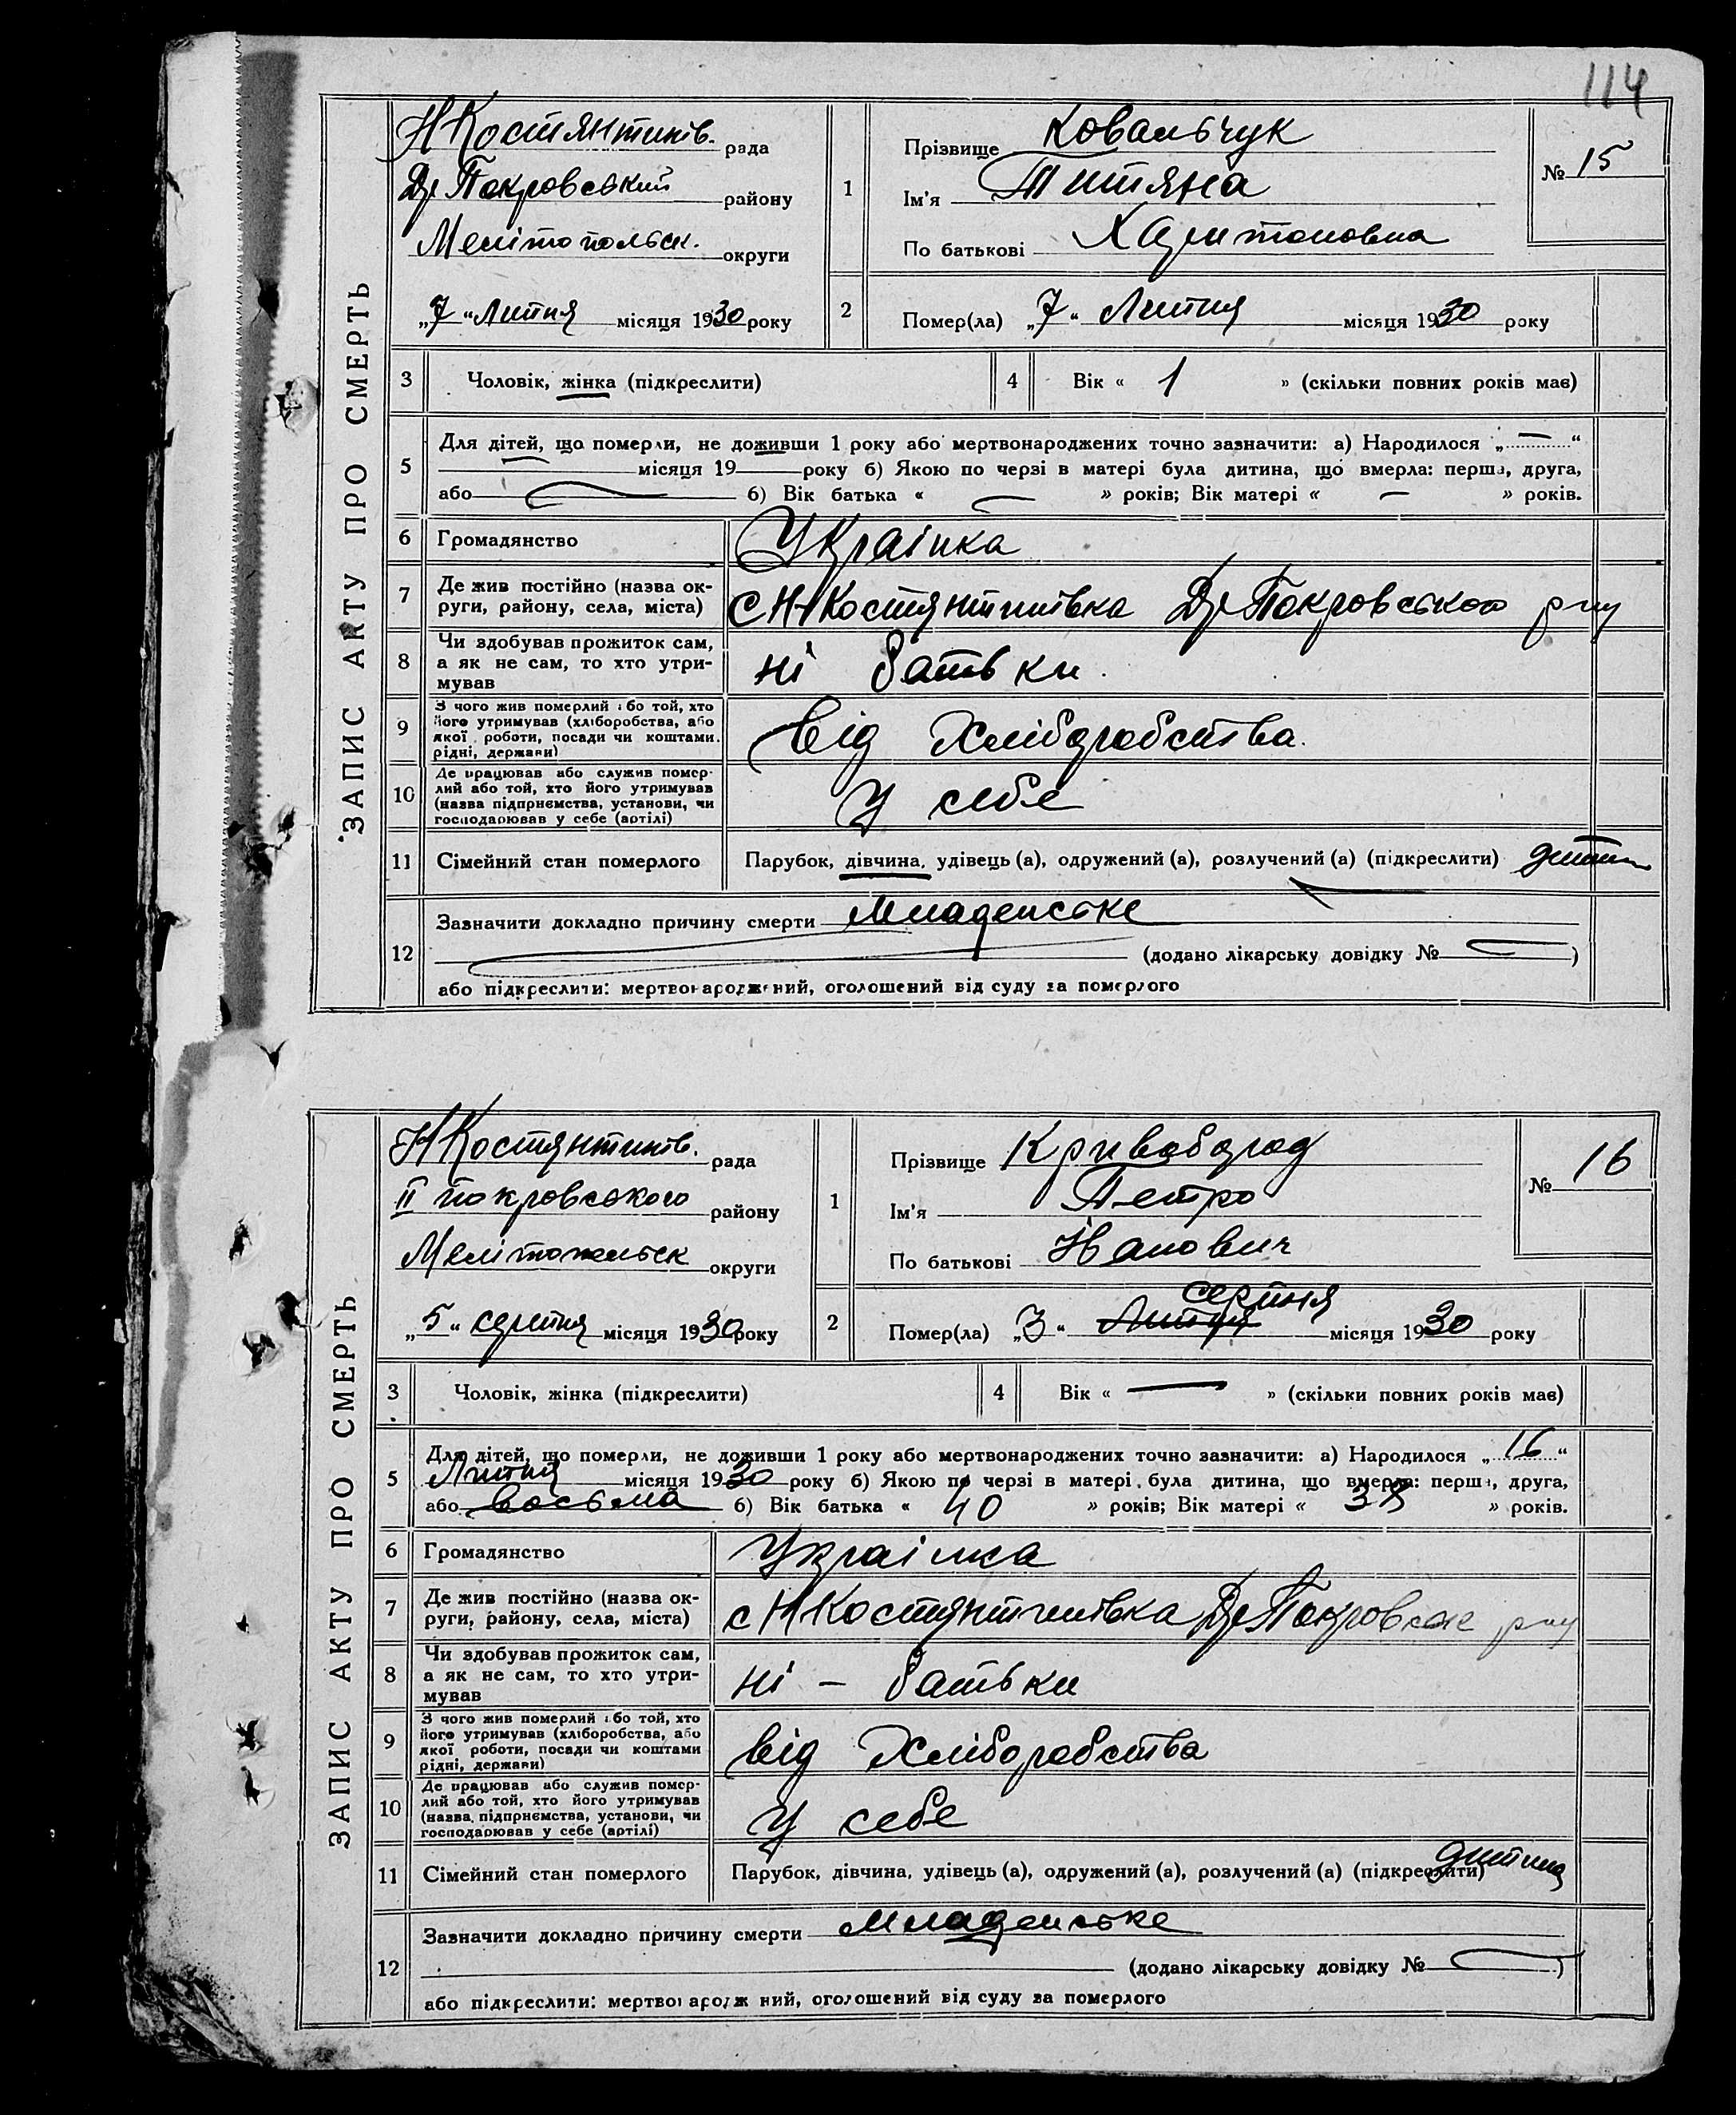 114
ЗАПИС АКТУ ПРО СМЕРТЬ
НКостянтинів. рада
Др Покровський району
Мелітопольск. округи
„7“ Липня місяця 1930 року
1
Прізвище Ковальчук
Ім'я Титяна
По батькові Харитоновна
№ 15
2 Помер(ла) „7“ Липня місяця 1930 року
3 Чоловік, жінка (підкреслити)
4 Вік « 1 » (скільки повних років має)
5 Для дітей, що померли, не доживши 1 року або мертвонароджених точно зазначити: а) Народилося „— “
— місяця 19 року б) Якою по черзі в матері була дитина, що вмерла: перша, друга,
або — б) Вік батька « — » років; Вік матері « — » років.
6 Громадянство Українка
7 Де жив постійно (назва ок-
руги, району, села, міста) с НКостянтинівка Др Покровського р-ну
8 Чи здобував прожиток сам,
а як не сам, то хто утри-
мував ні батьки.
9 З чого жив померлий або той, хто
його утримував (хліборобства, або
якої роботи, посади чи коштами
рідні, держави) від Хліборобства.
10 Де працював або служив помер-
лий або той, хто його утримував
(назва підприємства, установи, чи
господарював у себе (артілі) У себе
11 Сімейний стан померлого Парубок, дівчина, удівець (а), одружений (а), розлучений (а) (підкреслити) дитина
12 Зазначити докладно причину смерти Младенське
(додано лікарську довідку № )
або підкреслити: мертвонароджений, оголошений від суду за померлого
ЗАПИС АКТУ ПРО СМЕРТЬ
НКостянтинів. рада
II Покровського району
Мелітопольск округи
„5“ серпня місяця 1930 року
1
Прізвище Кривобород
Ім'я Петро
По батькові Іванович
№ 16
серпня
2 Помер(ла) „3“ Липня місяця 1930 року
3 Чоловік, жінка (підкреслити)
4 Вік « — » (скільки повних років має)
5 Для дітей, що померли, не доживши 1 року або мертвонароджених точно зазначити: а) Народилося „16“
Липня місяця 1930 року б) Якою по черзі в матері була дитина, що вмерла: перша, друга,
або восьма б) Вік батька « 40 » років; Вік матері « 38 » років.
6 Громадянство Українка
7 Де жив постійно (назва ок-
руги, району, села, міста) с НКостянтинівка Др Покровське р-ну
8 Чи здобував прожиток сам,
а як не сам, то хто утри-
мував ні — батьки
9 З чого жив померлий або той, хто
його утримував (хліборобства, або
якої роботи, посади чи коштами
рідні, держави) від Хліборобства
10 Де працював або служив помер-
лий або той, хто його утримував
(назва підприємства, установи, чи
господарював у себе (артілі) У себе
11 Сімейний стан померлого Парубок, дівчина, удівець (а), одружений (а), розлучений (а) (підкреслити) дитина
12 Зазначити докладно причину смерти Младенське
(додано лікарську довідку № )
або підкреслити: мертвонароджений, оголошений від суду за померлого